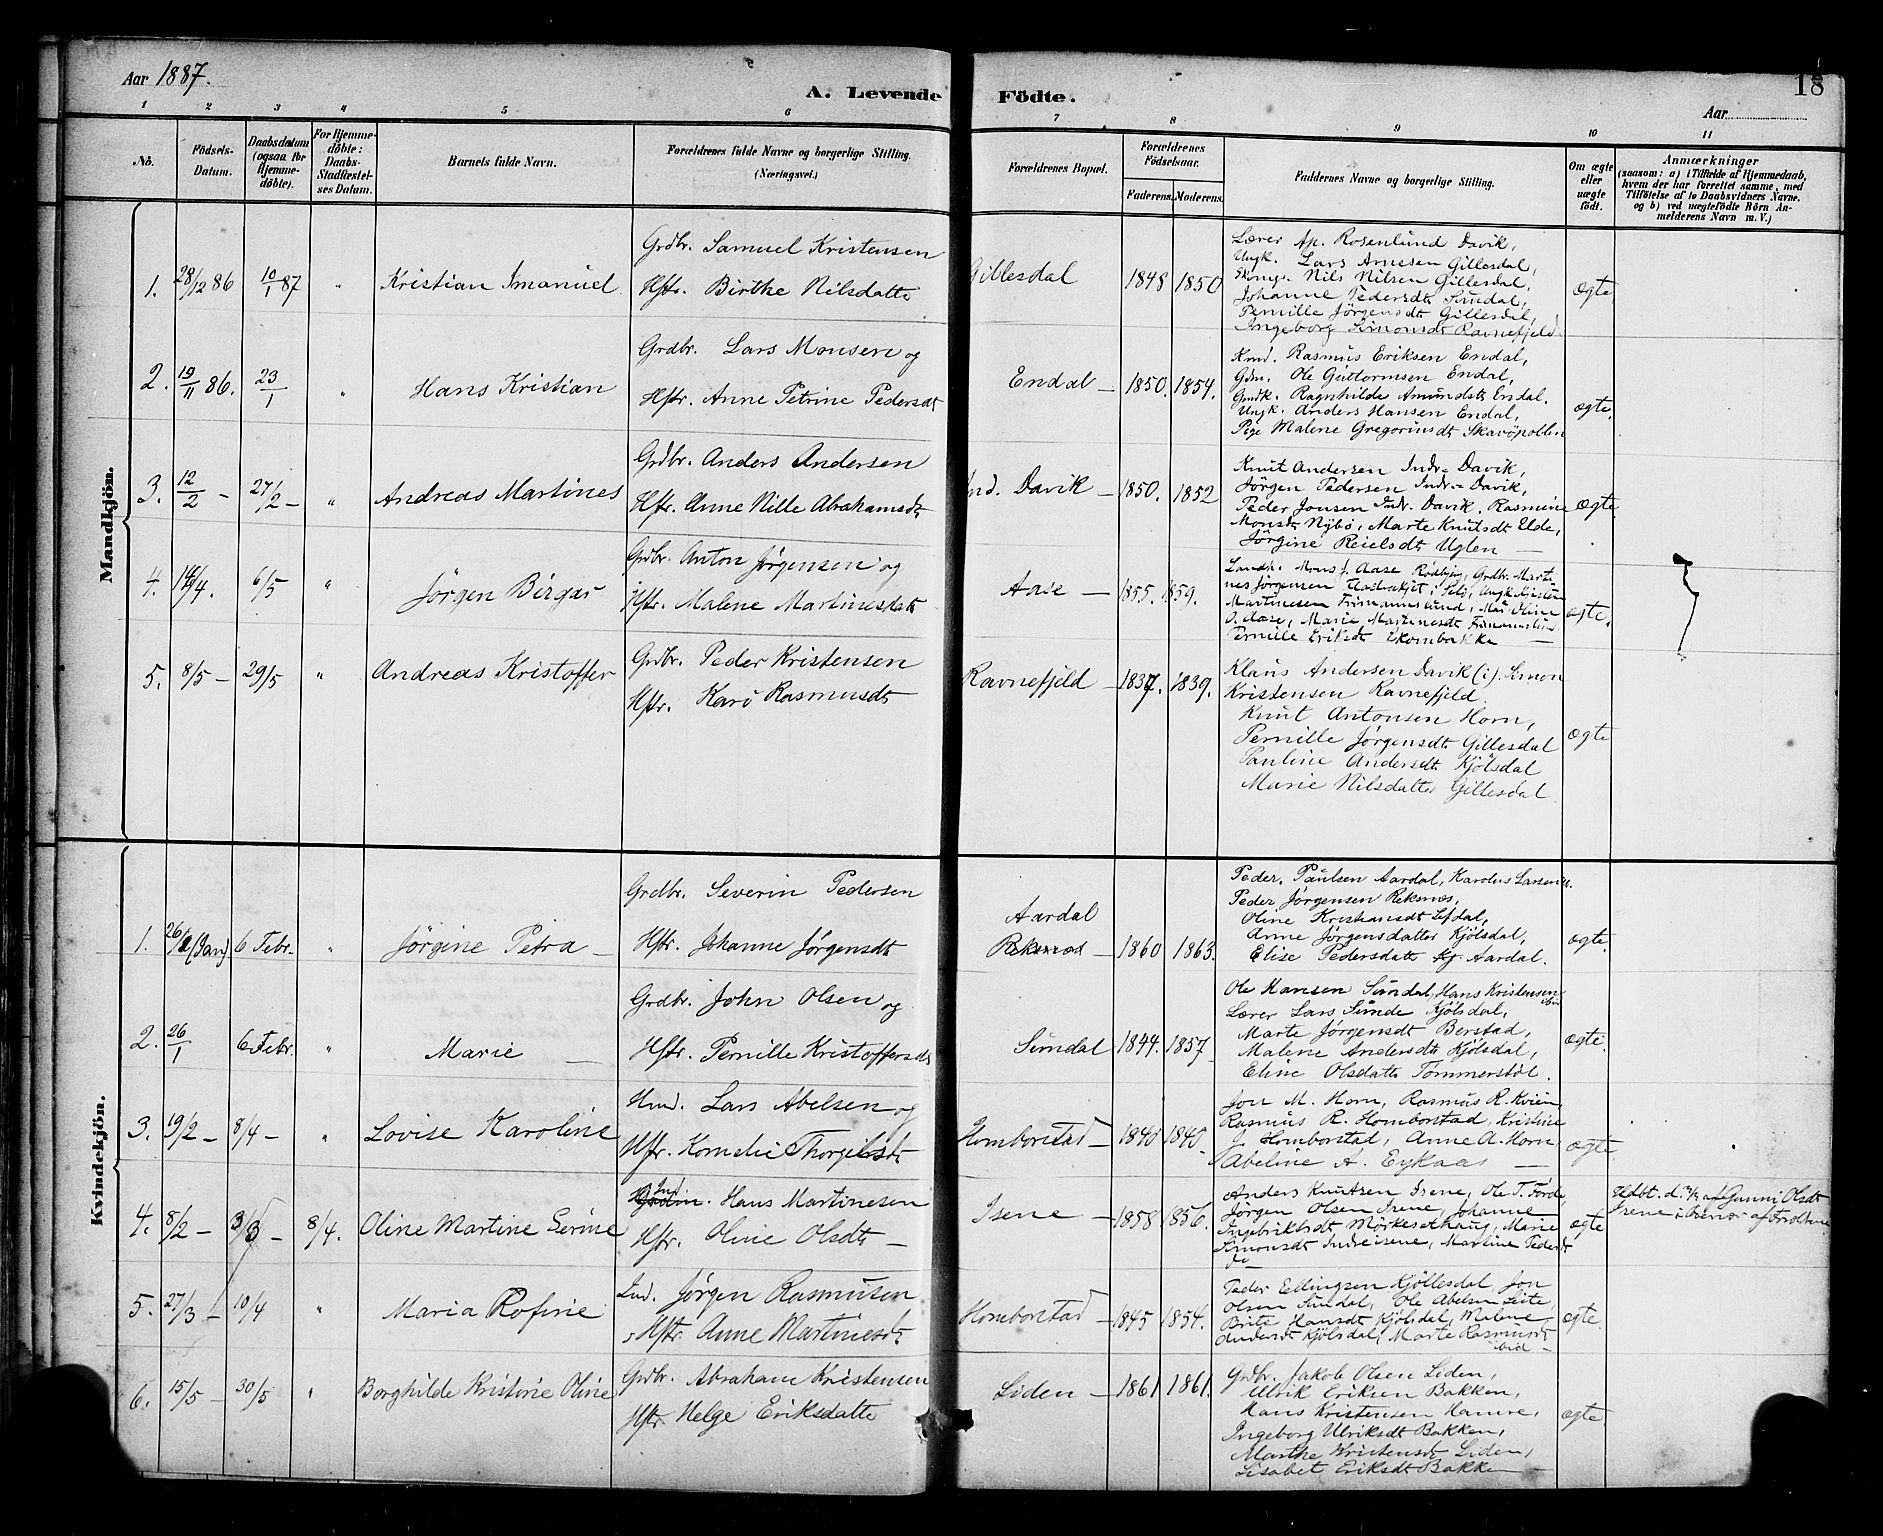 Aar 1887.
A. Levende Födte.
18
Aar
1 2 3 4 5 6 7 8 9 10 11
No.
Födsels-Datum.
Daabsdatum (ogsaa for Hjemme-döbte).
For Hjemme-döbte: Daabs-Stadfæstel-ses Datum.
Barnets fulde Navn.
Forældrenes fulde Navne og borgerlige Stilling. (Næringsvei.)
Forældrenes Bopæl.
Forældrenes Födselsaar.
Faderens. Moderens.
Faddernes Navne og borgerlige Stilling.
Om ægte eller uægte födt.
Anmærkninger
(saasom: a) i Tilfælde af Hjemmedaab,
hvem der har forrettet samme, med
Tilföielse af to Daabsvidners Navne.
og b) ved uægtefödte Börn An-
melderens Navn m. V.)
Mandkjön.
1. 28/12 86 10/1 87 " Kristian Imanuel.
Grdbr. Samuel Kristensen
Hftr. Birthe Nilsdatte
Gillesdal 1848 1850
Lærer Ap. Rosenlund Davik,
Ungk. Lars Arnesen Gillesdal,
Nils Nilsen Gillesdal,
Johanne Pedersdt Sundal,
Pernille Jörgensdt Gillesdal,
Ingeborg Simonsdt Ravnefjeld
ægte
2. 19/11 86. 23/1 " Hans Kristian
Grdbr. Lars Monsen og
Hftr. Anne Petrine Pedersdt
Endal — 1850. 1854.
Kmd. Rasmus Eriksen Endal,
Gdm. Ole Guttormsen Endal,
Gmdk. Ragnhilde Amundsdt Endal.
Ungk. Anders Hansen Endal,
Pige Malene Gregoriusdt Skavöpollen
ægte.
3. 12/2 — 27/2 — " Andreas Martines
Grdbr. Anders Andersen
Hftr. Anne Nille Abrahamsdt
Ind. Davik — 1850. 1852
Knut Andersen Indr-Davik,
Jörgen Pedersen Indr-Davik,
Peder Jonsen Indr. Davik. Rasmine
Monsdt Nybö, Marte Knutsdt Elde,
Jörgine Reielsdt Uglen —
ægte.
4. 14/4. 6/5 " Jörgen Birgar
Grdbr. Anton Jörgensen og
Hftr. Malene Martinesdatt
Aase — 1855. 1859.
Mons J. Aase Rödbjerg, Grdbr. Marti-
nes Jörgensen i Selö, Ungk. Kristen
Martinesen Frimannslund, Oline
J. Aase, Marie Martinesdt Frimannslund
Pernille Eriksdt —
ægte.
5. 8/5 — 29/5 " Andreas Kristoffer
Grdbr. Peder Kristensen
Hftr. Kari Rasmusdt
Ravnefjeld — 1837. 1839.
Klaus Andersen Davik (i). Simon
Kristensen Ravnefjeld
Knut Antonsen Horn,
Pernille Jörgensdt Gillesdal
Pauline Andersdt Kjölsdal
Marie Nilsdatter Gillesdal
ægte
Kvindekjön.
1. 26/1 (Jan) 6 Febr. " Jörgine Petra —
Grdbr. Severin Pedersen
Hftr. Johanne Jörgensdt
Aardal
Reksnæs — 1860 1863.
Peder. Paulsen Aardal, Karolus Larsen
Peder Jörgensen Reksnæs,
Oline Kristiansdt
Anne Jörgensdatter Kjölsdal,
Elise Pedersdatt Aardal.
ægte.
2. 26/1 6 Febr. " Marie —
Grdbr. John Olsen og
Hftr. Pernille Kristoffersdt
Sundal 1844. 1857
Ole Hansen Sundal, Hans Kristensen
Lærer Lars Sunde Kjölsdal,
Marte Jörgensdt Berstad,
Malene Andersdt Kjölsdal,
Eline Olsdatte Tömmerstöl.
ægte.
3. 19/2 — 8/4 — " Lovise Karoline
Hmd. Lars Abelsen og
Hftr. Kornelie Thorgilsdt
Homborstad — 1840 1840.
Jon M. Horn, Rasmus R. Kvien,
Rasmus R. Homborstad, Kristine
J. Homborstad, Anne A. Horn,
Abeline A. Eykaas —
ægte.
4. 8/2 — 3/3 — 8/4. Oline Martine Serine
Ind. Hans Martinesen
Hftr. Oline Olsdt —
Isene — 1858 1856.
Anders Knutsen Isene, Ole T. Förde,
Jörgen Olsen Isene, Johanne
Ingebriktsdt Mörkesethaug, Marie
Simonsdt Indreisene, Martine Pedersdt
do
ægte
Hdbt. d. af Gunni Olsdt
Isene
5. 27/3 — 10/4 " Maria Rofine
Ind. Jörgen Rasmusen
Hftr. Anne Martinesdt
Homborstad — 1845 1854.
Peder Ellingsen Kjöllesdal, Jon
Olsen Sundal, Ole Abelsen Leite,
Brite Hansdt Kjölsdal, Malene
Andersdt Kjölsdal, Marte Rasmusdt
ibid —
ægte
6. 15/5 — 30/5 " Borghilde Kristine Oline
Grdbr. Abraham Kristensen
Hftr. Helge Eriksdatte
Liden — 1861 1861.
Grdbr. Jakob Olsen Liden,
Ulrik Eriksen Bakken,
Hans Kristensen Hamre,
Ingeborg Ulriksdt Bakken,
Marthe Kristensdt Liden,
Lisabet Eriksdt Bakken —
ægte